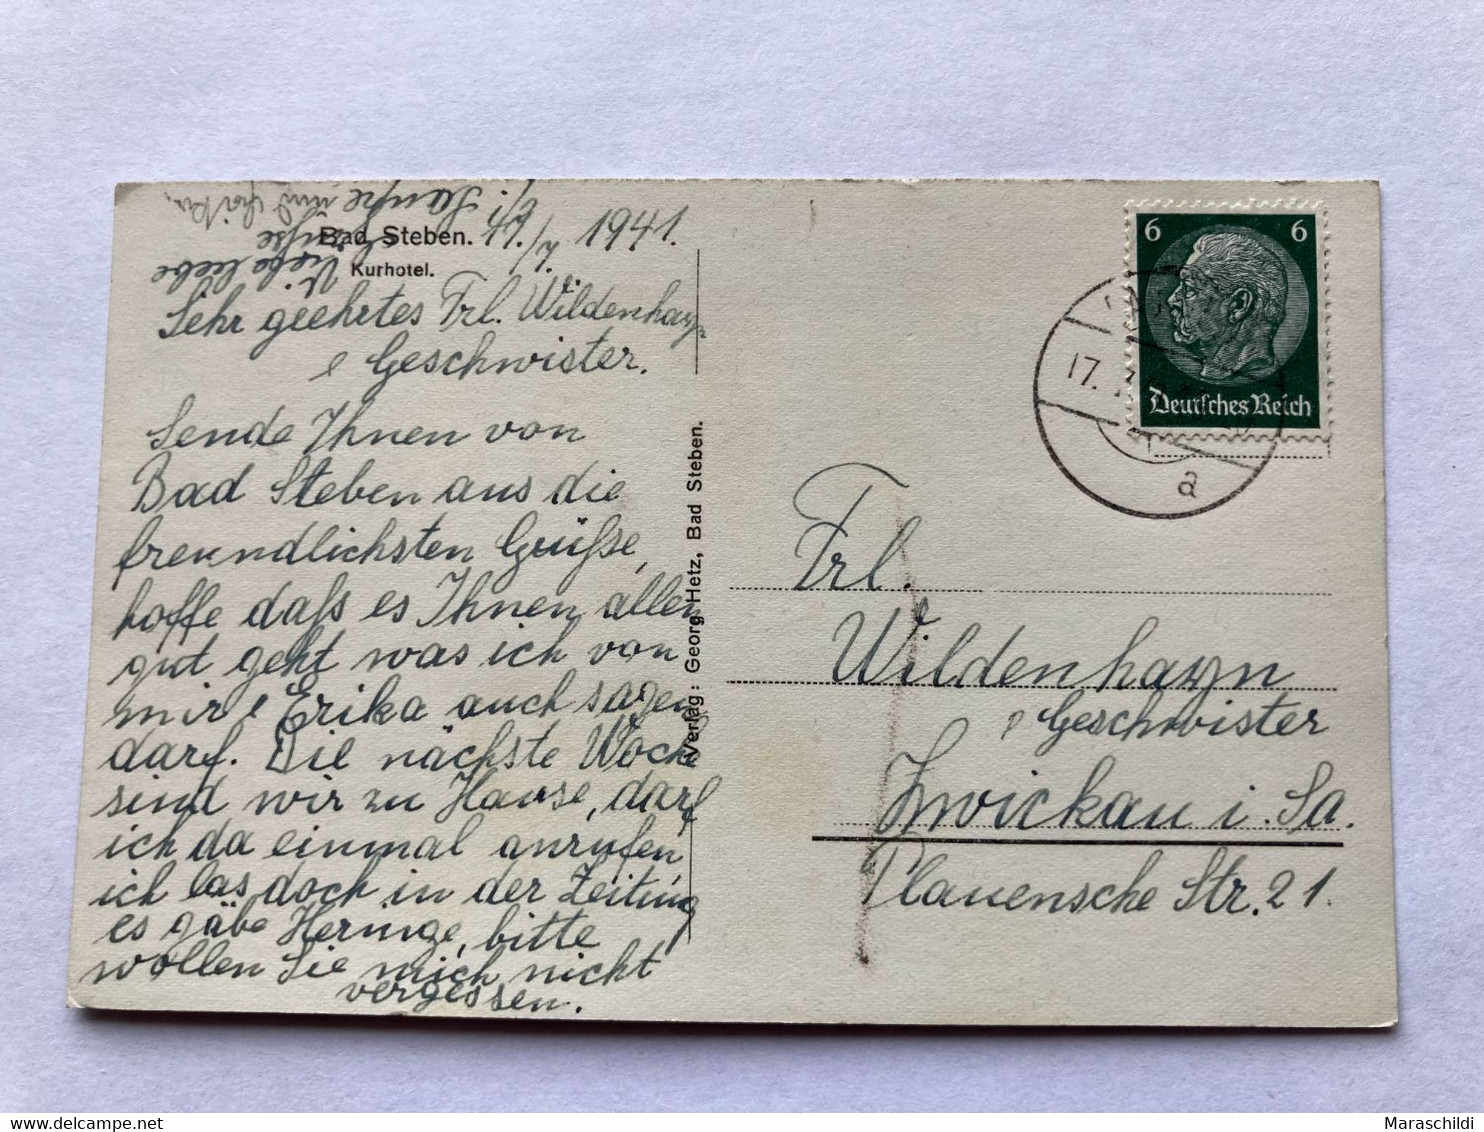 Bad Steben. 17./7. 1941.
Kurhotel.
Sehr geehrtes Frl. Wildenhayn
Geschwister.
Sende Ihnen von
Bad Steben aus die
freundlichsten Grüße,
hoffe daß es Ihnen allen
gut geht was ich von
mir Erika auch sagen
darf. Die nächste Woche
sind wir zu Hause, darf
ich da einmal anrufen
ich las doch in der Zeitung
es gäbe Heringe, bitte
wollen Sie mich nicht
vergessen.
Viele liebe
Grüße
und
Verlag: Georg Hetz, Bad Steben.
6 6
Deutsches Reich
17.
a
Frl.
Wildenhayn
Geschwister
Zwickau i. Sa.
Plauensche Str. 21.
Maraschildi